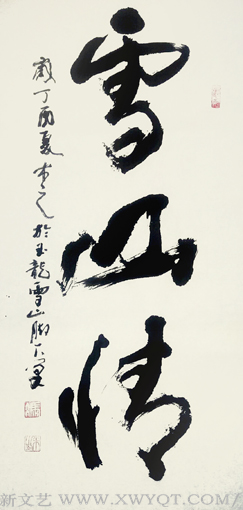 雪山情
岁丁酉夏 於玉龍雪山脚下
新文艺 WWW.XWYQT.COM